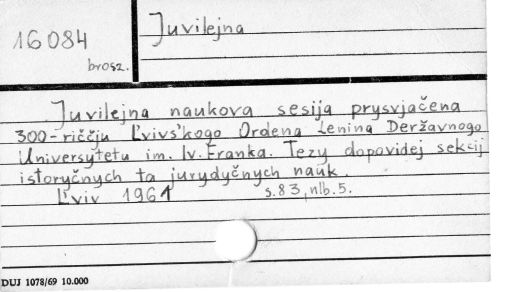 16084
brosz.
Juvilejna
Juvilejna naukova sesija prysvjačena
300-riččju L'vivs'kogo Ordena Lenina Deržavnogo
Universytetu im. Iv. Franka. Tezy dopovidej sekcij
istoryčnych ta jurydyčnych nauk.
L'viv 1961 s.83, nlb.5.
DUJ 1078/69 10.000